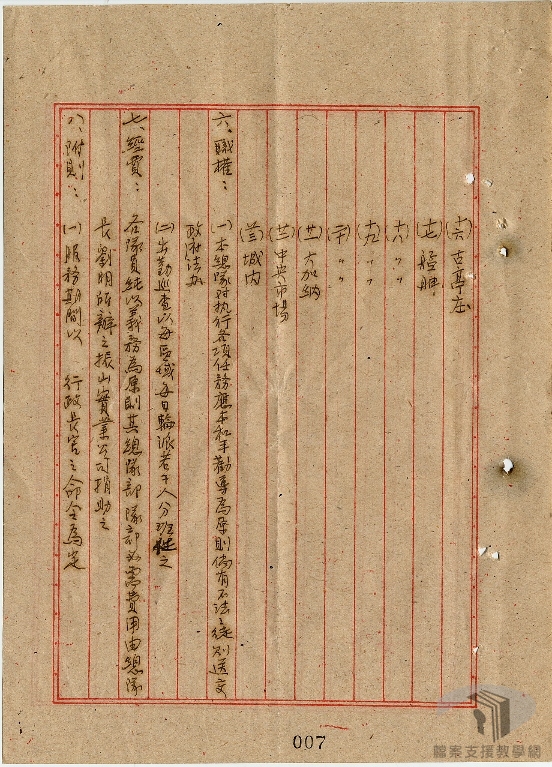 (十六)古亭庄
(十七)艋舺
(十八)〃〃
(十九)〃〃
(二十)〃〃
(廿一)大加納
(廿二)中央市場
(廿三)城内
六、職權：(一)本總隊对执行各項任務應本和平勸導為原則倘有不法之徒則送交
政府法办
(二)出勤巡查以每區域每日輪派若干人分班之
七、經費：各隊員純以義務為原則其總隊部隊部必需費用由總隊
長劉明所辦之振山實業公司捐助之
八、附則：(一)服務期間以 行政長官之命令為定
007
檔案支援教學網